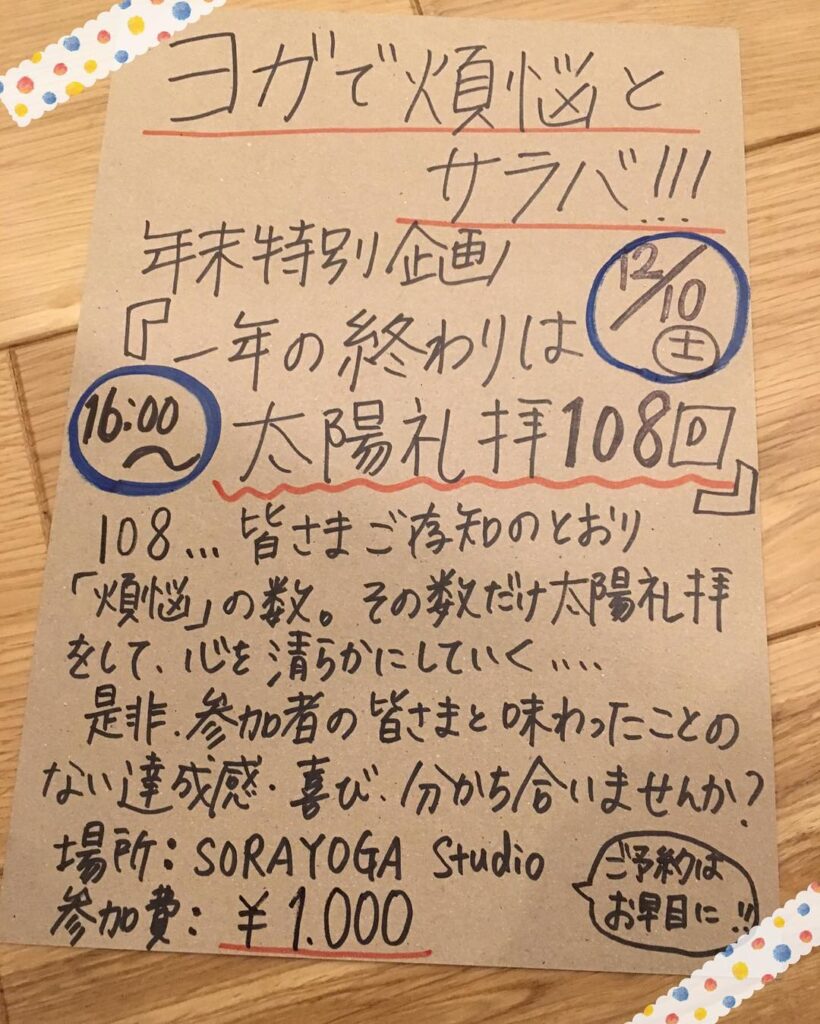 ヨガで煩悩と
サラバ!!!
年末特別企画
12/10
土
『一年の終わりは
16:00
〜
太陽礼拝108回』
108... 皆さまご存知のとおり
「煩悩」の数。その数だけ太陽礼拝
をして、心を清らかにしていく....
是非、参加者の皆さまと味わったことの
ない達成感・喜び、分かち合いませんか?
場所:SORAYOGA Studio
参加費:¥1.000
ご予約は
お早目に!!